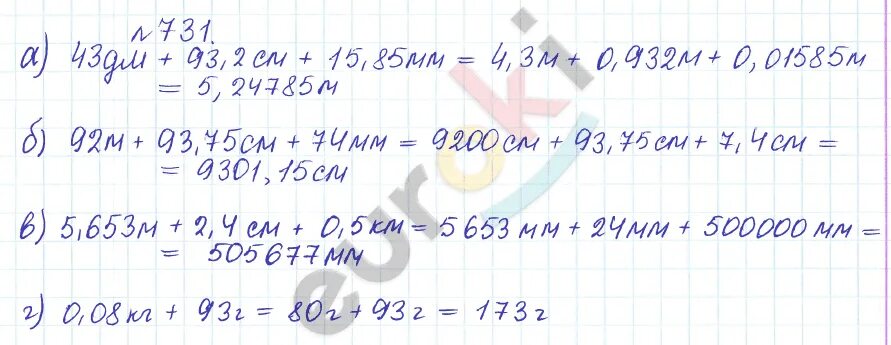 № 731.
а) 43дм + 93,2см + 15,85мм = 4,3м + 0,932м + 0,01585м
= 5,24785м
б) 92м + 93,75см + 74мм = 9200см + 93,75см + 7,4см =
= 9301,15см
в) 5,653м + 2,4см + 0,5км = 5653мм + 24мм + 500000мм =
= 505677мм
г) 0,08кг + 93г = 80г + 93г = 173г
euroki